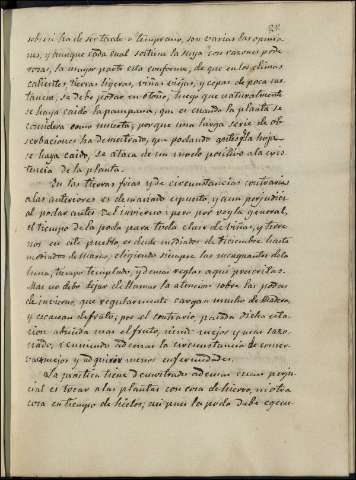 sobre si ha de ser tarde o temprano, son varias las opinio
nes, y aunque cada cual sostiene la suya con razones pode
rosas, la mayor parte esta conforme, de que en los climas
calientes, tierras lijeras, viñas viejas, y cepas de poca sus
tancia, se debe podar en otoño, luego que naturalmente
se haya caido la pampana, que es cuando la planta se
considera como muerta; porque una larga serie de ob
servaciones ha demostrado, que podando antes q la hoja
se haya caido, se ataca de un modo positivo a la exis
tencia de la planta.
En las tierras frias y de circunstancias contrarias
a las anteriores es demasiado espuesto, y aun perjudicial
el podar antes del invierno: pero por regla general,
el tiempo de la poda para toda clase de viñas, y terre
nos en este pueblo, es desde mediados de Diciembre hasta
mediados de Marzo, eligiendo siempre las menguantes de la
luna, tiempo templado, y demas reglas aqui prescritas.
Mas no debo dejar de llamar la atencion sobre las podas
de invierno, que regularmente cargan mucho de madera
y escasean de fruto; por el contrario pasada dicha esta
cion abunda mas el fruto, siendo mejor y mas sazo
nado, reuniendo ademas la circunstancia de conser
varse mejor y adquirir menos enfermedades.
La practica tiene demostrado ademas cuan perju
cial es tocar a las plantas con cosa de hierro, ni otra
cosa en tiempo de hielos; asi pues la poda debe egecu